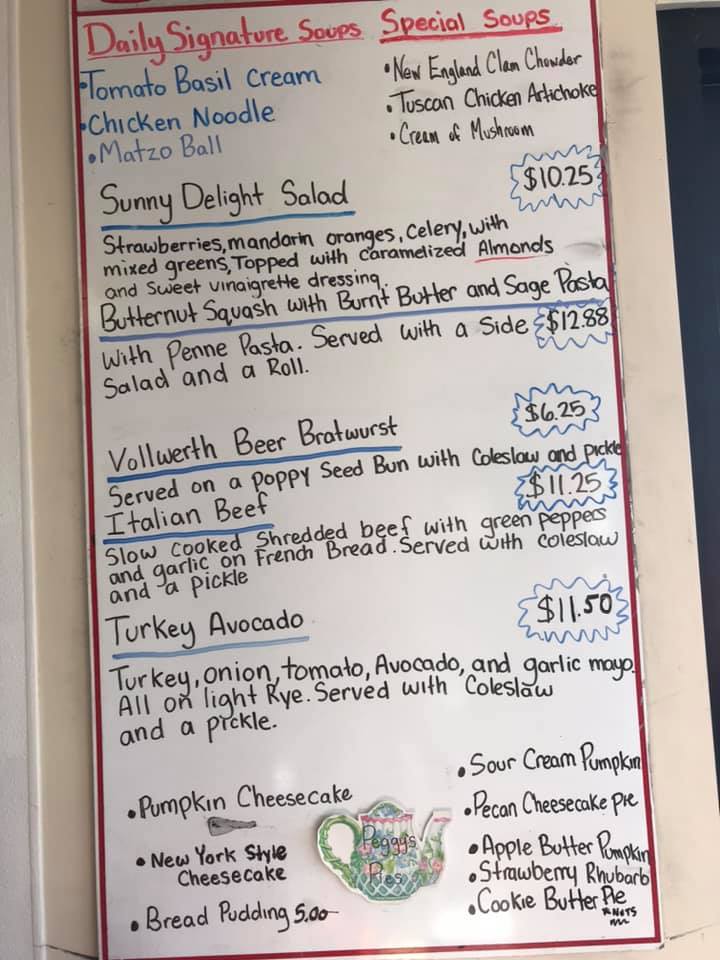 Daily Signature Soups
• Tomato Basil Cream
• Chicken Noodle
• Matzo Ball
Special Soups
• New England Clam Chowder
• Tuscan Chicken Artichoke
• Cream of Mushroom
Sunny Delight Salad
$10.25
Strawberries, mandarin oranges, Celery, with
mixed greens, Topped with caramelized Almonds
and Sweet vinaigrette dressing.
Butternut Squash with Burnt Butter and Sage Pasta
$12.88
With Penne Pasta. Served with a Side
Salad and a Roll.
Vollwerth Beer Bratwurst
$6.25
Served on a Poppy Seed Bun with Coleslaw and pickle
Italian Beef
$11.25
Slow Cooked Shredded beef with green Peppers
and garlic on French Bread. Served with coleslaw
and a pickle
Turkey Avocado
$11.50
Turkey, onion, tomato, Avocado, and garlic mayo.
All on light Rye. Served with Coleslaw
and a pickle.
• Pumpkin Cheesecake
• New York Style
Cheesecake
• Bread Pudding 5.00
Peggy's
Pies
• Sour Cream Pumpkin
• Pecan Cheesecake Pie
• Apple Butter Pumpkin
• Strawberry Rhubarb
• Cookie Butter Pie
* NUTS